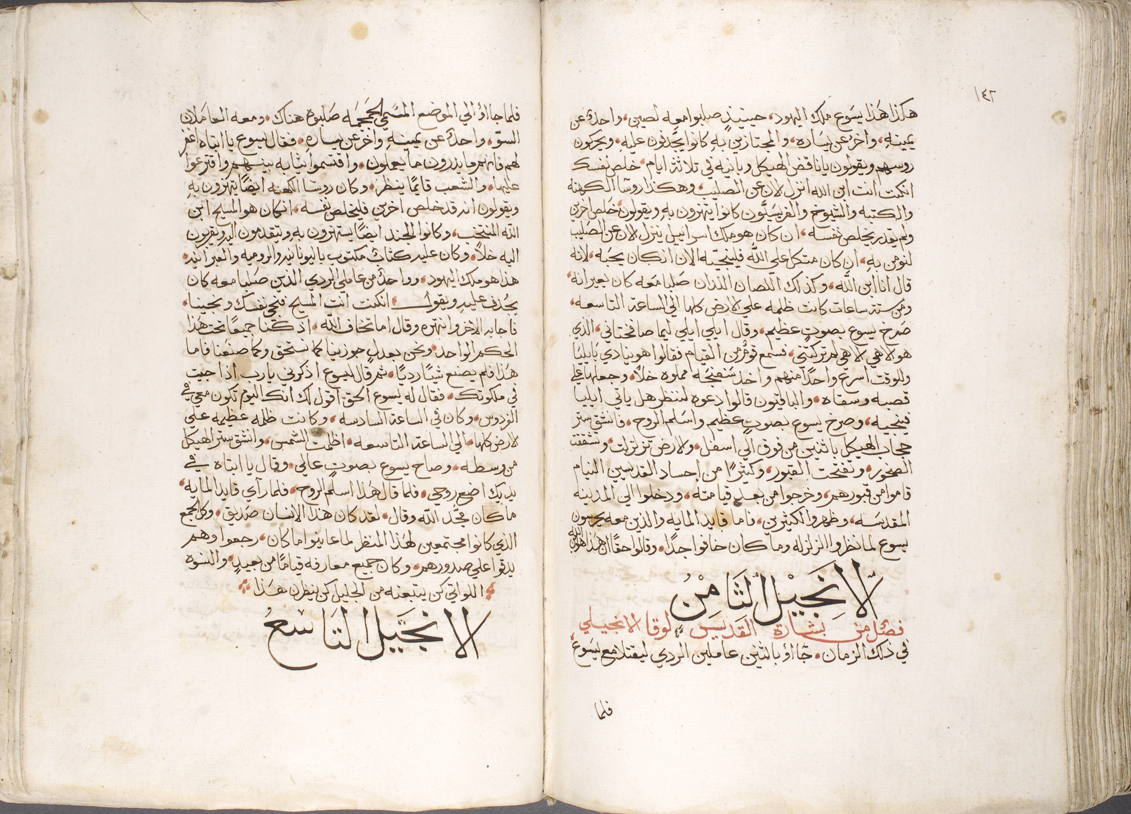 ١٤٢
هكذا هذا يسوع ملك اليهود، حينيذٍ صلبوا معه لصين، واحدة عن
يمينه، واخر عن يساره، والمجتازين به كانوا يجدفون عليه، ويحركون
روسهم ويقولون ياناقض الهيكل وبانيه في ثلاثة ايام، خلص نفسك
انكنت انت ابن الله انزل لان عن الصليب، وهكذا روسا الكهنه
والكتبه والشيوخ والفريسيون كانوا يتهزون به ويقولون، خلص اخرين
ولم يقدر يخلص نفسه، ان كان هو ملك اسراييل ينزل لان عن الصليب
لنومن به، ان كان متكل على الله فلينجيه الان انكان يحبه، لانه
قال انا ابن الله، وكذلك اللصان اللذان صلبا معه كان يعيرانه
ومن ستة ساعات كانت ظلمه على لارض كلها الى الساعة التاسعه،
صرخ يسوع بصوتٍ عظيم، وقال ايلي ايلي ليما صافختاني، الذي
هو لاهي لاهي لم تركتني، سمع قومٌ من القيام فقالوا هو ينادي يا ايليا
وللوقت اسرع واحدًا منهم واخذ سفنجه مملوه خلاً، وجعلها على
قصبه وسقاه، والباقيون قالوا دعوه لننظر هل ياتي ايليا
فينجيه، وصرخ يسوع بصوتٍ عظيم واسلم الروح، وانشق ستر
حجاب الهيكل باثنين من فوق الى اسفل، ولارض تزلزلت، وتشققت
الصخور، وتفتحت القبور، وكثيرًا من اجساد القديسين النيام
قاموا من قبورهم، وخرجوا من بعد قيامته، ودخلوا الى المدينه
المقدسه، وظهروا لكثيرين، فاما قايد المايه والذين معه يحرسون
يسوع لما نظروا الزلزله وما كان خافوا جدًا، وقالوا حقًا ان هذا هو ابن الله
لانجيل الثامن
فصل من بشارة القديس لوقا الانجيلي
في ذلك الزمان، جااو باثنين عاملين الردي ليقتلا مع يسوع،
فلما
فلما جااو الى الموضع المسمى الجمجمه صلبوه هناك، ومعه العاملان
السو، واحدٌ عن يمينه واخر عن يساره، فقال يسوع يا ابتاه اغفر
لهم فانهم ما يدرون ما يعملون، واقتسموا ثيابه بينهم واقترعوا
عليها، والشعب قايمًا ينظر، وكان روسا الكهنه ايضًا يتهزون به
ويقولون انه قد خلص اخرين فليخلص نفسه، انكان هو المسيح ابن
الله المنتخب، وكانوا الجند ايضًا يستهزون به ويتقدمون اليه يقربون
اليه خلاً، وكان عليه كتابٌ مكتوب باليونانيه والروميه والعبرانيه،
هذا هو ملك اليهود، وواحدٌ من عاملي الردي الذين صلبا معه كان
يجدف عليه ويقول، انكنت انت المسيح فنجي نفسك ونجينا،
فاجابه الاخر وانتهره وقال اما تخاف الله، اذ كنا جميعًا تحت هذا
الحكم الواحد، ونحن بعدلٍ جوزينا كما نستحق وكما صنعنا فاما
هذا فلم يصنع شيًا رديًا، ثم قال ليسوع اذكرني يارب اذا جيت
في ملكوتك، فقال له يسوع الحق اقول لك انك اليوم تكون معي في
الفردوس، وكان في الساعة السادسه، وكانت ظلمه عظيمه على
لارض كلها، الى الساعة التاسعه، اظلمت الشمس، وانشق ستر الهيكل
من وسطه، وصاح يسوع بصوتٍ عالي، وقال يا ابتاه في
يديك اضع روحي، فلما قال هذا اسلم الروح، فلما راي قايد المايه
ما كان مجد الله وقال، لقد كان هذا الانسان صديق، وكل الجمع
الذي كانوا مجتمعين لهذا المنظر لما عاينوا ما كان، رجعوا وهم
يدقوا على صدورهم، وكان جميع معارفه قيامًا من بعيدٍ، والنسوه
اللواتي كن يتبعنه من الجليل كن ينظرن هذا
الانجيل التاسع